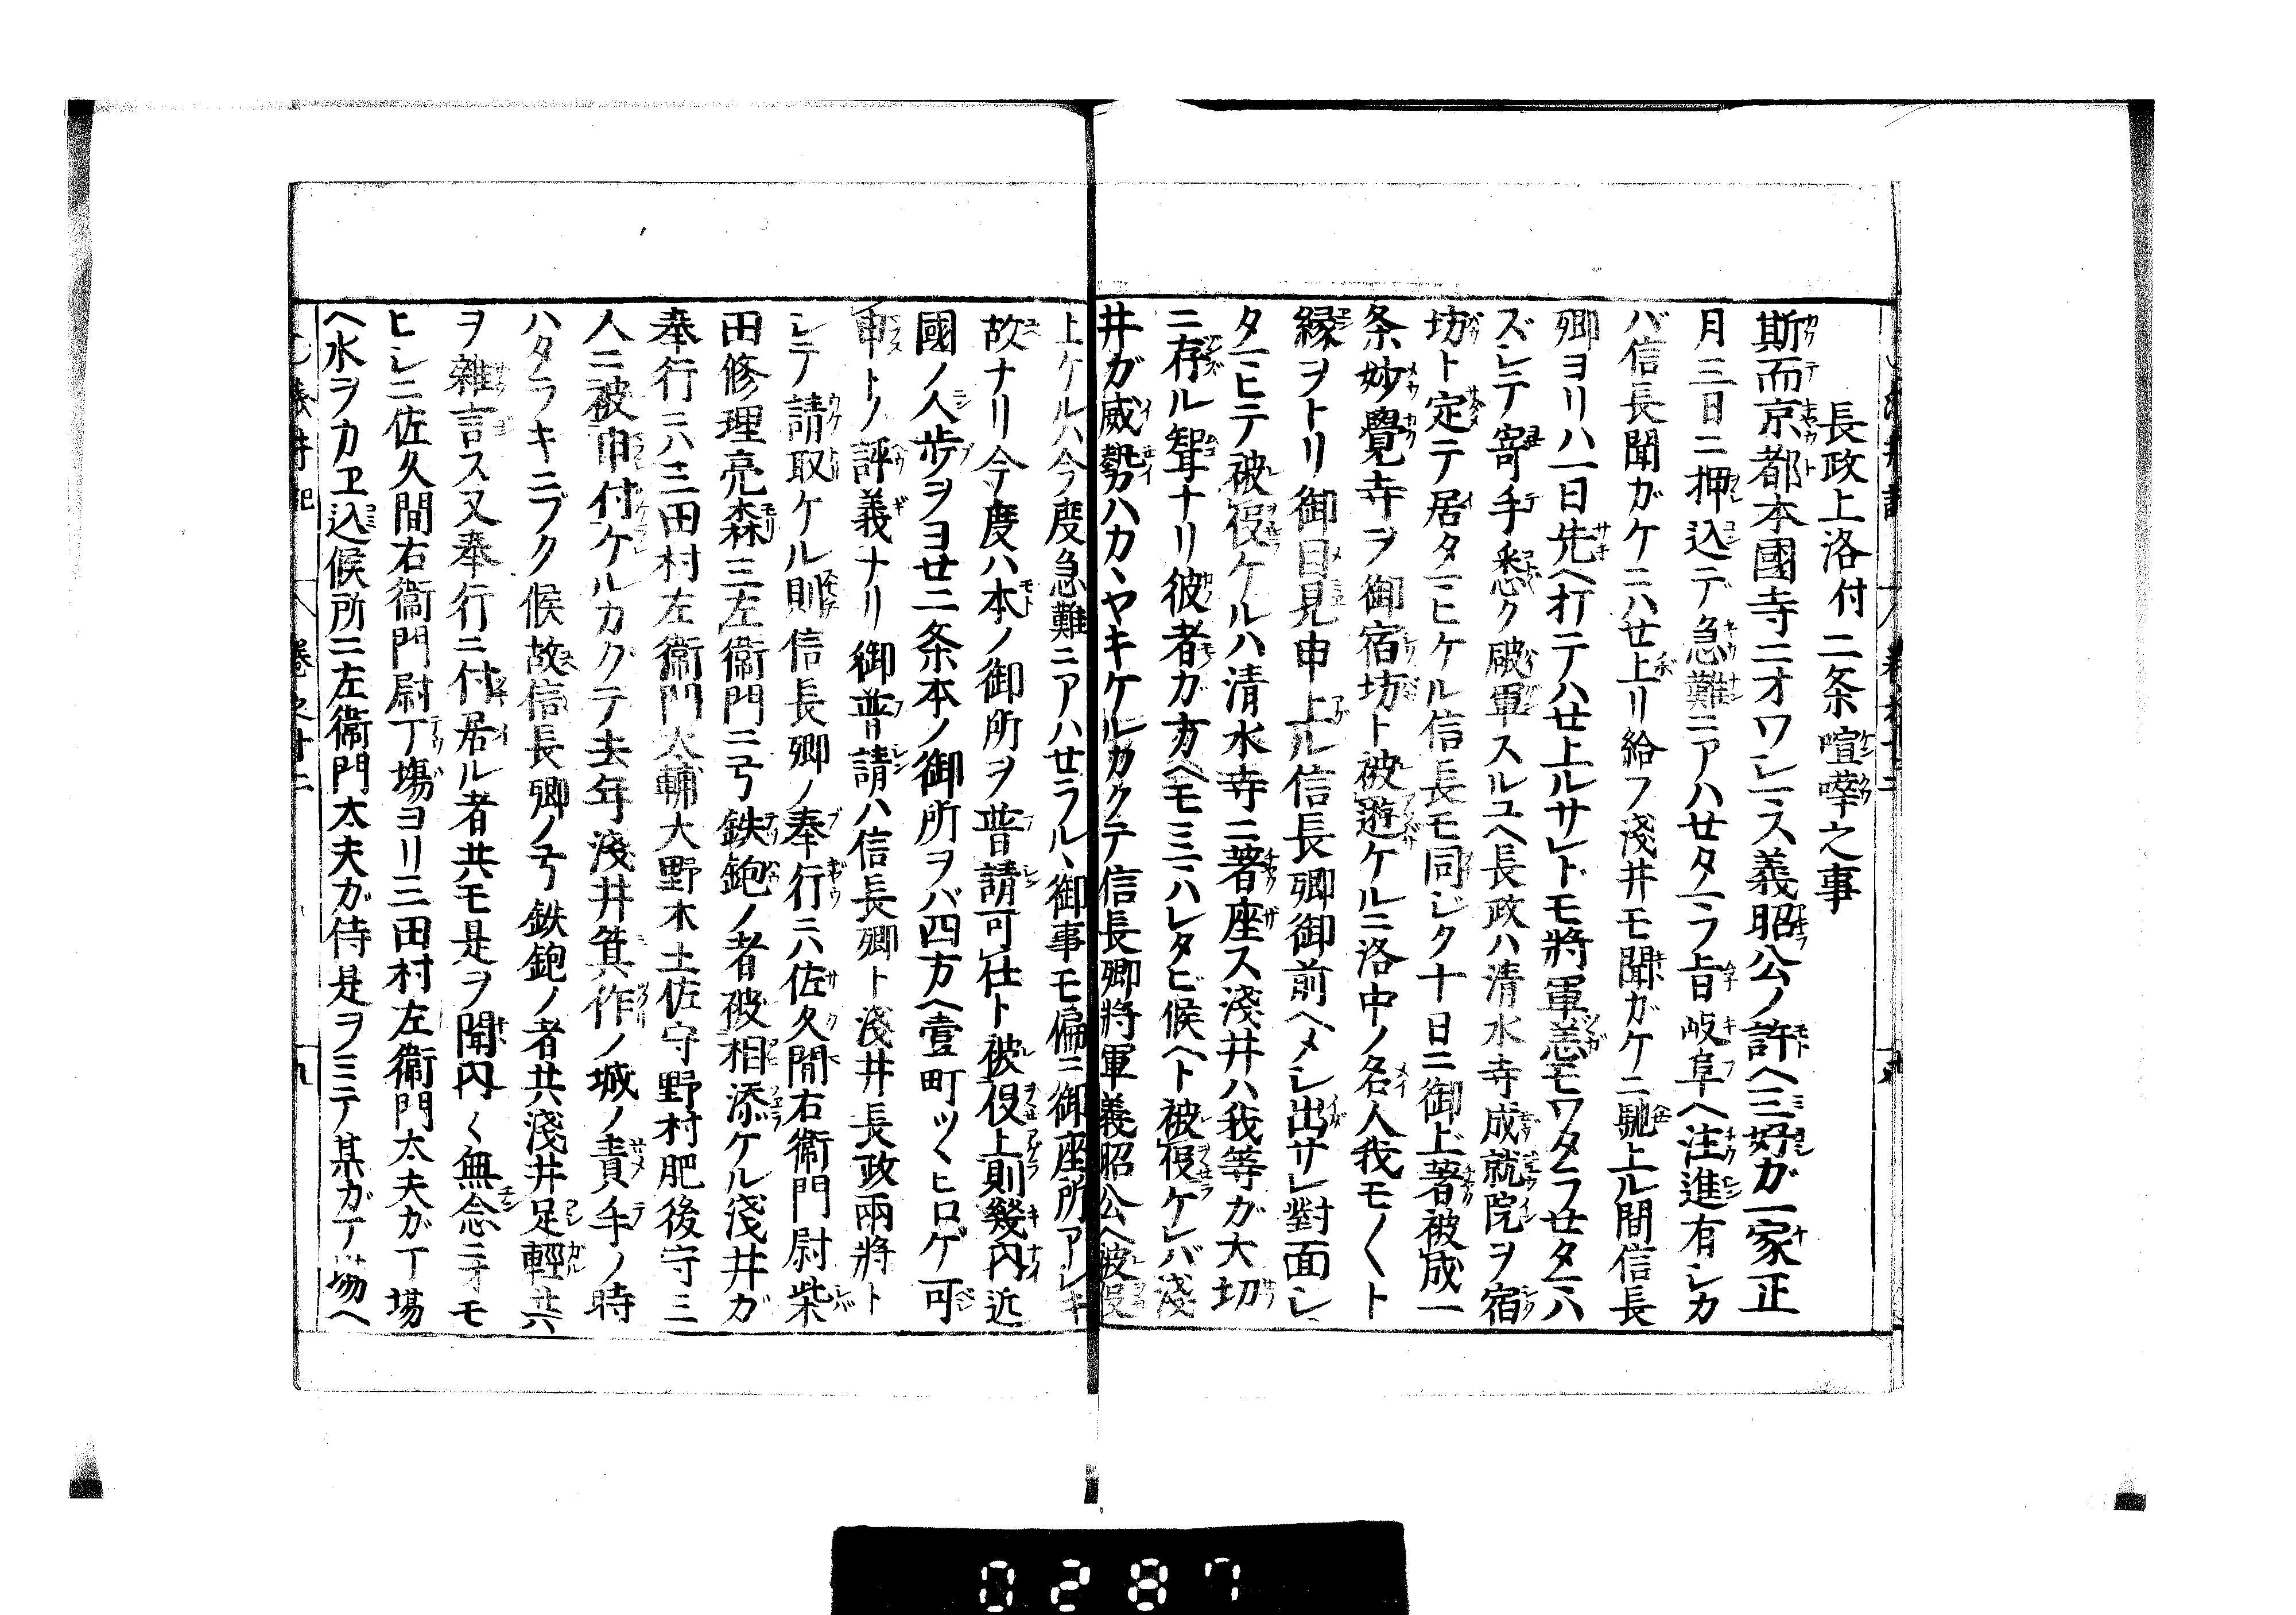 長政上洛付二条喧嘩之事
斯而京都本國寺ニオワシマス義昭公ノ許ヘ三好ガ一家正
月三日ニ押込デ急難ニアハセタマフ旨岐阜ヘ注進有シカ
バ信長聞ガケニハセ上リ給フ淺井モ聞ガケニ馳上ル間信長
卿ヨリハ一日先ヘ打テハセ上ルサレトモ將軍恙モワタラセタマハ
ズシテ寄手悉ク破軍スルユヘ長政ハ清水寺成就院ヲ宿
坊ト定テ居タマヒケル信長モ同シク十日ニ御上著被成一
条妙覺寺ヲ御宿坊ト被遊ケルニ洛中ノ名人我モ〱ト
縁ヲトリ御目見申上ル信長卿御前ヘメシ出サレ對面シ
タマヒテ被仰ケルハ清水寺ニ著座ス淺井ハ我等ガ大切
ニ存ル聟ナリ彼者ガ方ヘモミマハレタビ候ヘト被仰ケレバ淺
井ガ威勢ハカヽヤキケルカクテ信長卿將軍義昭公ヘ被仰
上ケルハ今度急難ニアハセラルヽ御事モ偏ニ御座所アシキ
故ナリ今度ハ本ノ御所ヲ普請可仕ト被仰上則畿内近
國ノ人歩ヲヨセ二条本ノ御所ヲバ四方ヘ壹町ツヽヒロゲ可
申トノ評義ナリ御普請ハ信長卿ト淺井長政兩將ト
シテ請取ケル則信長卿ノ奉行ニハ佐久間右衞門尉柴
田修理亮森三左衞門ニ弓鉄鉋ノ者被相添ケル淺井ガ
奉行ニハ三田村左衞門大輔大野木土佐守野村肥後守三
人ニ被申付ケルカクテ去年淺井箕作ノ城ノ責手ノ時
ハタラキニブク候故信長卿ノ弓鉄鉋ノ者共淺井足輕共
ヲ雜言ス又奉行ニ付居ル者共モ是ヲ聞内〱無念ニオモ
ヒシニ佐久間右衞門尉丁場ヨリ三田村左衞門太夫ガ丁場
ヘ水ヲカヱ込候所ニ左衞門太夫ガ侍是ヲミテ某ガ丁場ヘ
九
0287